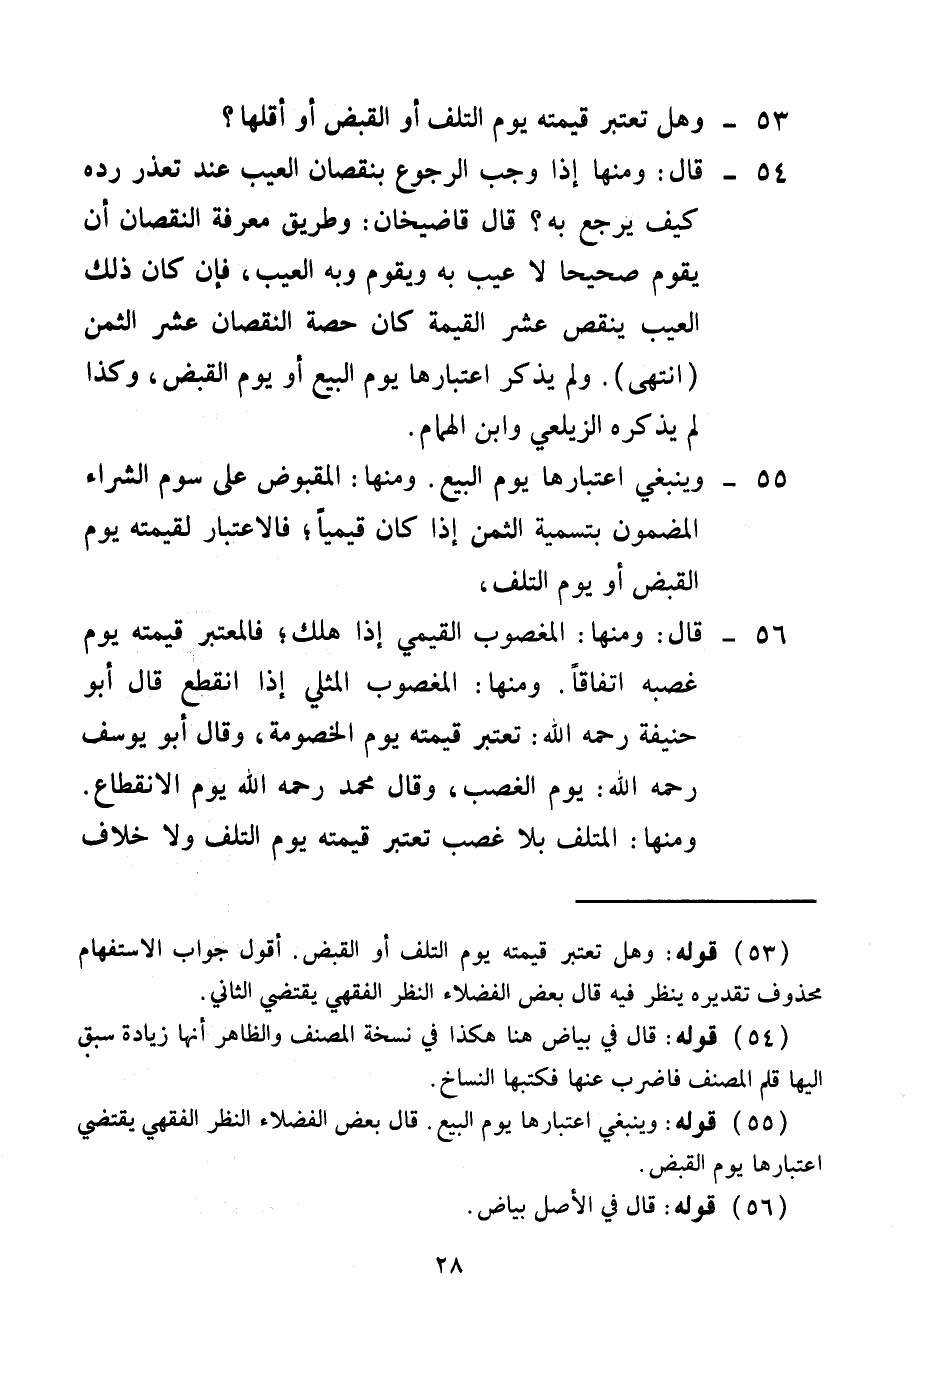 ٥٣ - وهل تعتبر قيمته يوم التلف أو القبض أو أقلها؟
٥٤ - قال: ومنها إذا وجب الرجوع بنقصان العيب عند تعذر رده
كيف يرجع به؟ قال قاضيخان: وطريق معرفة النقصان أن
يقوم صحيحا لا عيب به ويقوم وبه العيب، فإن كان ذلك
العيب ينقص عشر القيمة كان حصة النقصان عشر الثمن
(انتهى). ولم يذكر اعتبارها يوم البيع أو يوم القبض، وكذا
لم يذكره الزيلعي وابن الهمام.
٥٥ - وينبغي اعتبارها يوم البيع. ومنها: المقبوض على سوم الشراء
المضمون بتسمية الثمن إذا كان قيمياً؛ فالاعتبار لقيمته يوم
القبض أو يوم التلف،
٥٦ - قال: ومنها: المغصوب القيمي إذا هلك؛ فالمعتبر قيمته يوم
غصبه اتفاقاً. ومنها: المغصوب المثلي إذا انقطع قال أبو
حنيفة رحمه الله: تعتبر قيمته يوم الخصومة، وقال أبو يوسف
رحمه الله: يوم الغصب، وقال محمد رحمه الله يوم الانقطاع.
ومنها: المتلف بلا غصب تعتبر قيمته يوم التلف ولا خلاف
(٥٣) قوله: وهل تعتبر قيمته يوم التلف أو القبض. أقول جواب الاستفهام
محذوف تقديره ينظر فيه قال بعض الفضلاء النظر الفقهي يقتضي الثاني.
(٥٤) قوله: قال في بياض هنا هكذا في نسخة المصنف والظاهر أنها زيادة سبق
اليها قلم المصنف فاضرب عنها فكتبها النساخ.
(٥٥) قوله: وينبغي اعتبارها يوم البيع. قال بعض الفضلاء النظر الفقهي يقتضي
اعتبارها يوم القبض.
(٥٦) قوله: قال في الأصل بياض.
٢٨